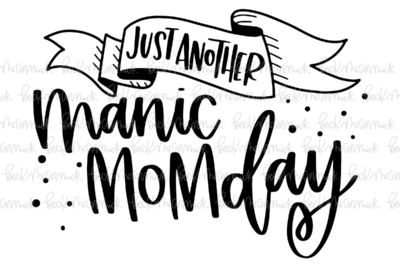 JUST ANOTHER
manic
MOMday